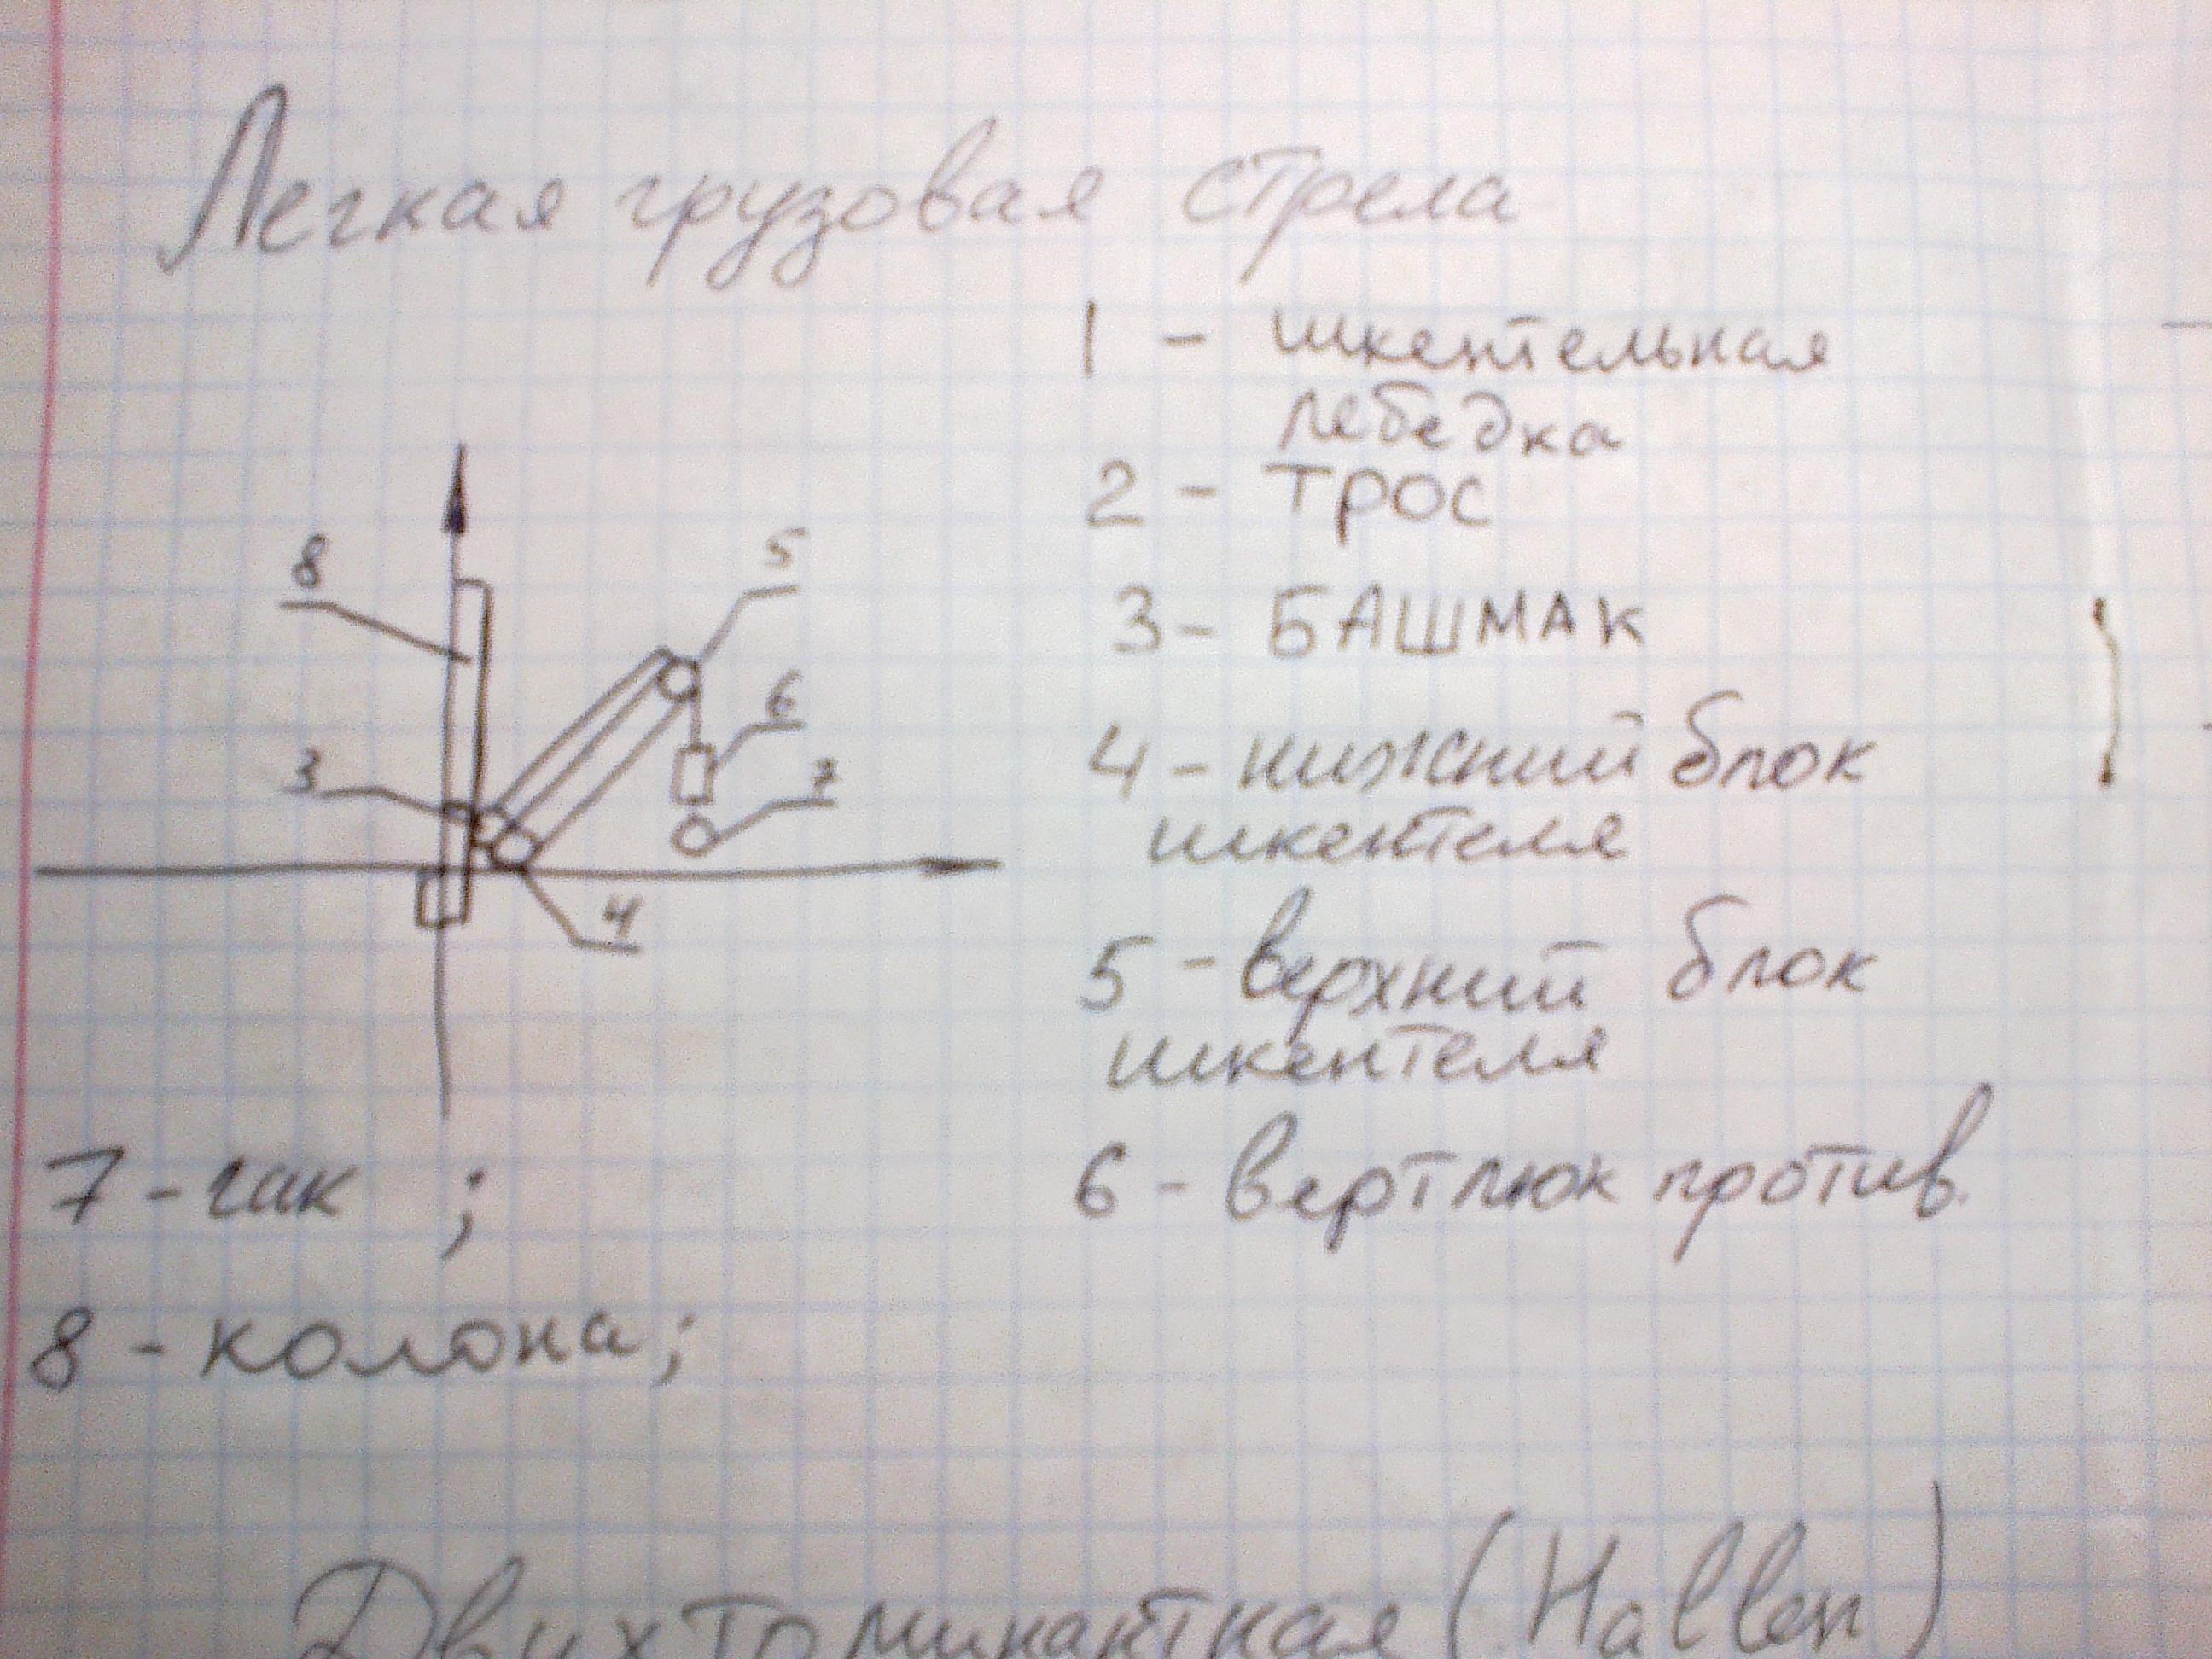 Легкая грузовая стрела
1 - шкентельная
лебедка
2 - трос
3 - БАШМАК
4 - нижний блок
шкентеля
5 - верхний блок
шкентеля
6 - вертлюк против.
7 - гак ;
8 - колона;
8
5
6
3
7
4
Двухтоминантная (Hallen)